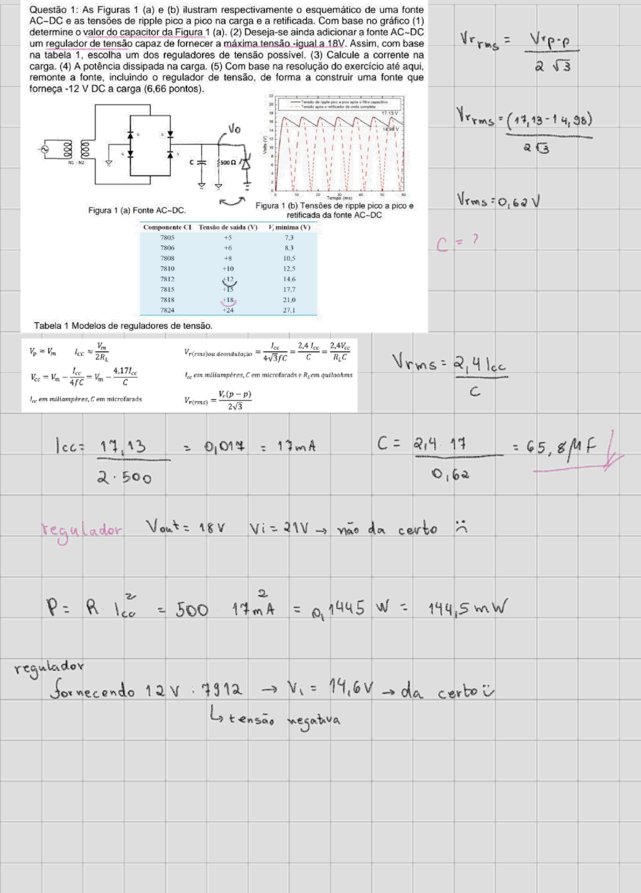 Questão 1: As Figuras 1 (a) e (b) ilustram respectivamente o esquemático de uma fonte
AC–DC e as tensões de ripple pico a pico na carga e a retificada. Com base no gráfico (1)
determine o valor do capacitor da Figura 1 (a). (2) Deseja-se ainda adicionar a fonte AC–DC
um regulador de tensão capaz de fornecer a máxima tensão -igual a 18V. Assim, com base
na tabela 1, escolha um dos reguladores de tensão possível. (3) Calcule a corrente na
carga. (4) A potência dissipada na carga. (5) Com base na resolução do exercício até aqui,
remonte a fonte, incluindo o regulador de tensão, de forma a construir uma fonte que
forneça -12 V DC a carga (6,66 pontos).
Vo
C
500 Ω
N1 : N2
Tensão de ripple pico a pico após o filtro capacitivo
Tensão após o retificador de onda completa
17,13 V
14,98 V
Volts (V)
Tempo (ms)
Figura 1 (a) Fonte AC-DC.
Figura 1 (b) Tensões de ripple pico a pico e
retificada da fonte AC-DC
Componente CI Tensão de saída (V) Vi mínima (V)
7805 +5 7,3
7806 +6 8,3
7808 +8 10,5
7810 +10 12,5
7812 +12 14,6
7815 +15 17,7
7818 +18 21,0
7824 +24 27,1
Tabela 1 Modelos de reguladores de tensão.
Vp = Vm Icc ≈ Vm/2RL
Vr(rms)ou deondulação = Icc/4√3fC = 2,4 Icc/C = 2,4Vcc/RLC
Vcc = Vm − Icc/4fC = Vm − 4,17Icc/C
Icc em miliampéres, C em microfarads e RL em quiloohms
Icc em miliampéres, C em microfarads
Vr(rms) = Vr(p − p)/2√3
Vr rms = Vr p-p / 2 √3
Vr rms = (17,13-14,98) / 2√3
Vrms = 0,62 V
C = ?
Vrms = 2,4 Icc / C
Icc = 17,13 / 2·500 = 0,017 = 17mA
C = 2,4·17 / 0,62 = 65,8μF
regulador Vout = 18V Vi = 21V → não da certo :(
P = R Icc² = 500 17mA² = 0,1445 W = 144,5mW
regulador
fornecendo 12V . 7912 → Vi = 14,6V → da certo :)
↳ tensão negativa